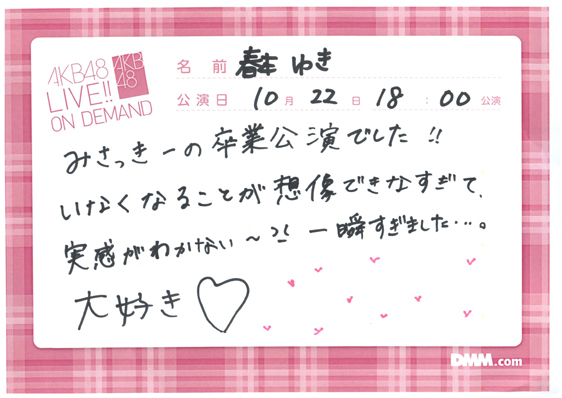 AKB48
LIVE!!
ON DEMAND
AKB
48
名 前 春本 ゆき
公演日 10月 22日 18:00公演
みさっきーの卒業公演でした!!
いなくなることが想像できなすぎて、
実感がわかない〜 一瞬すぎました…。
大好き♡
DMM.com